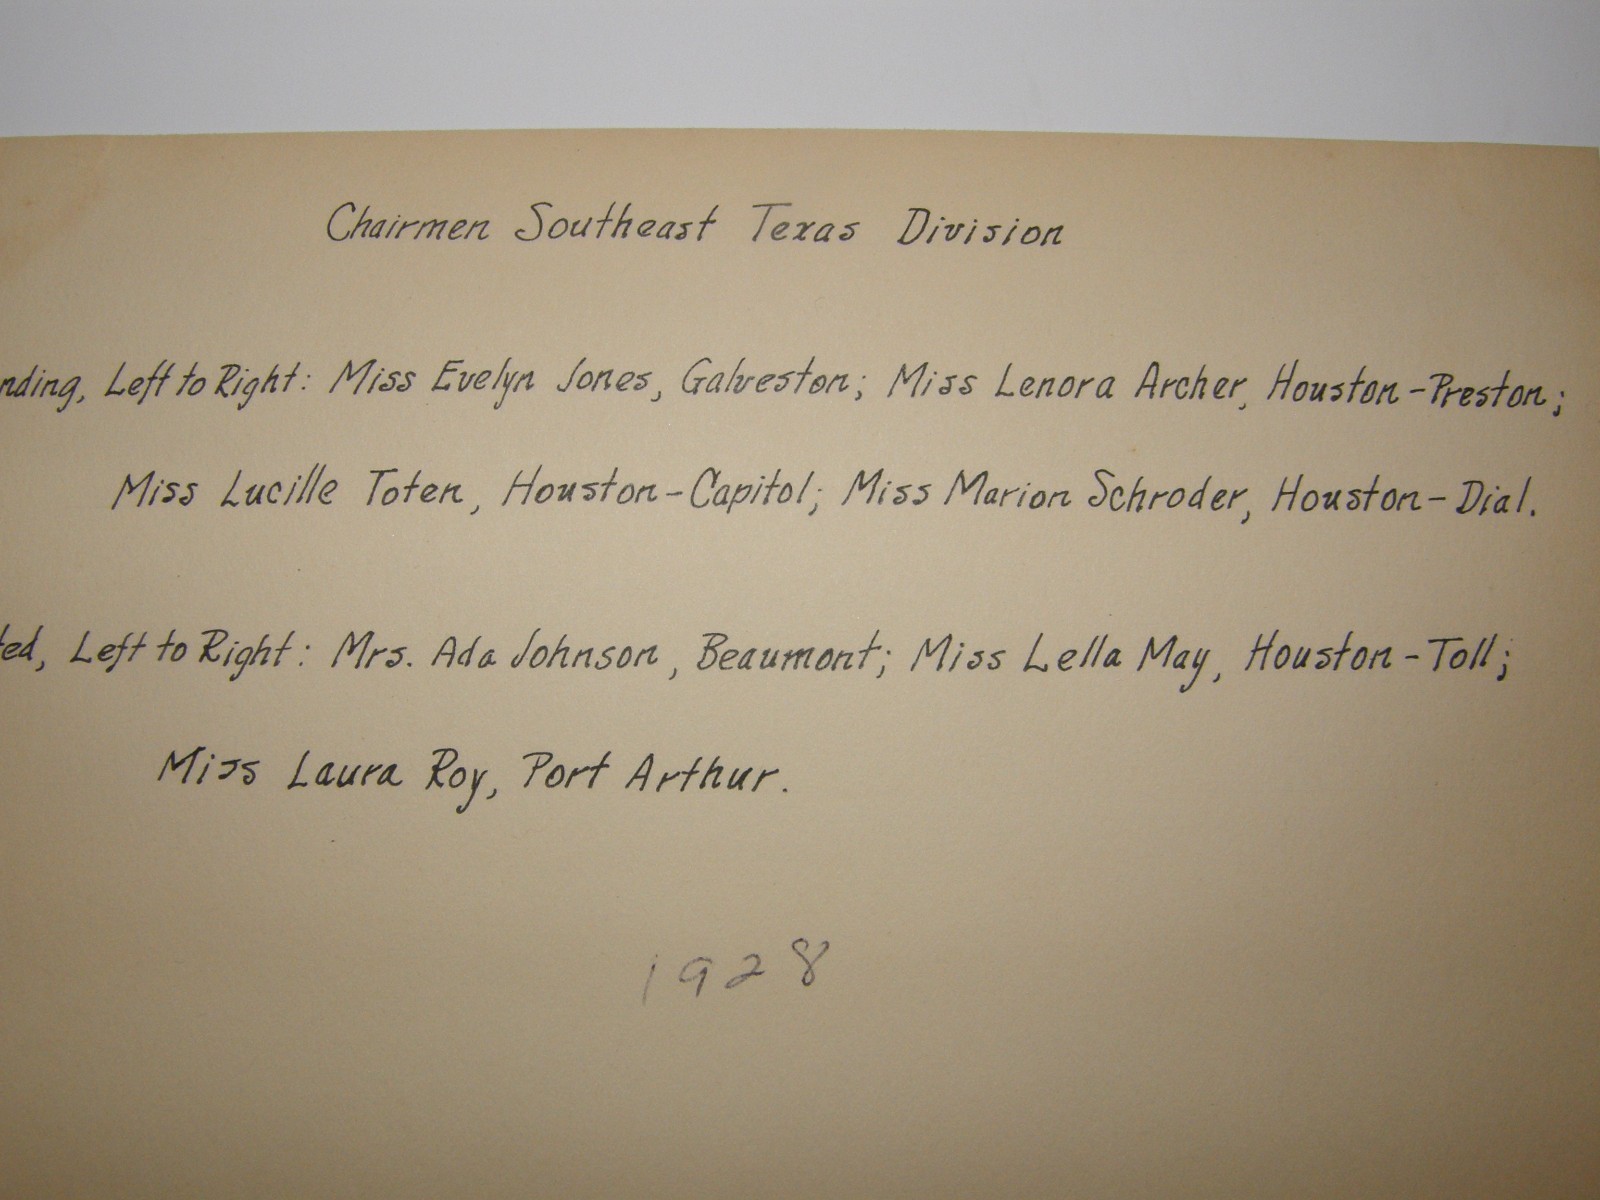 Chairmen Southeast Texas Division
nding, Left to Right: Miss Evelyn Jones, Galveston; Miss Lenora Archer, Houston-Preston;
Miss Lucille Toten, Houston-Capitol; Miss Marion Schroder, Houston-Dial.
ted, Left to Right: Mrs. Ada Johnson, Beaumont; Miss Lella May, Houston-Toll;
Miss Laura Roy, Port Arthur.
1928